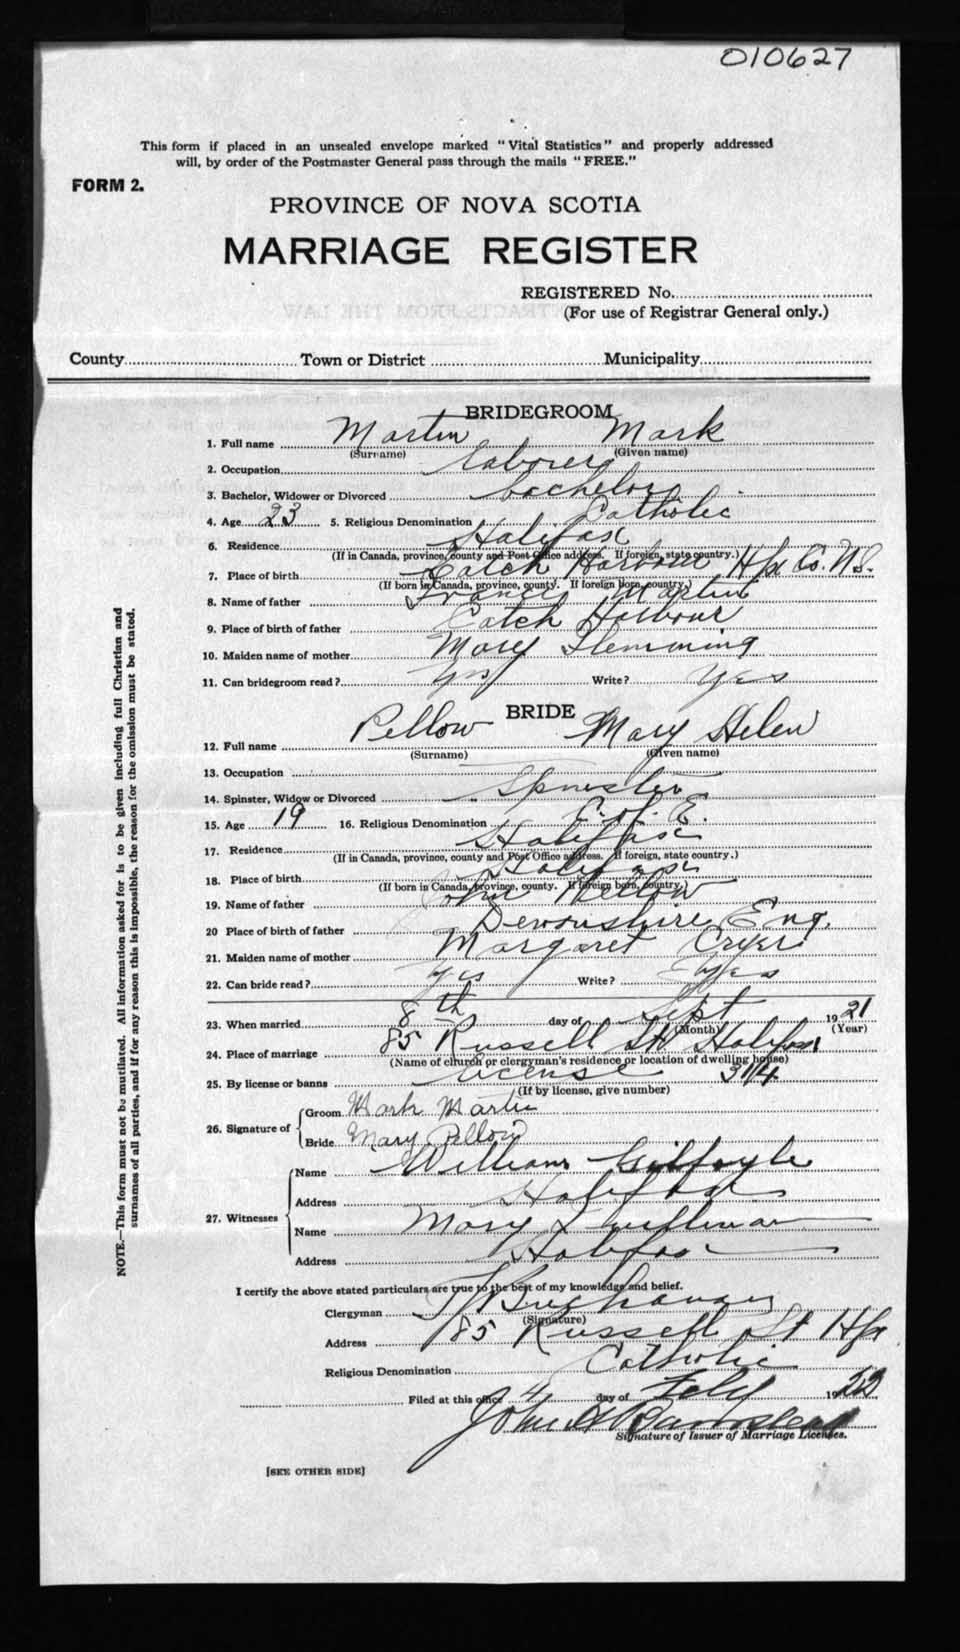 010627
This form if placed in an unsealed envelope marked "Vital Statistics" and properly addressed
will, by order of the Postmaster General pass through the mails "FREE."
FORM 2.
PROVINCE OF NOVA SCOTIA
MARRIAGE REGISTER
REGISTERED No.
(For use of Registrar General only.)
County Town or District Municipality
BRIDEGROOM
1. Full name Martin Mark
(Surname) (Given name)
2. Occupation laborer
3. Bachelor, Widower or Divorced bachelor
4. Age 23 5. Religious Denomination Catholic
6. Residence Halifax
(If in Canada, province, county and Post Office address. If foreign, state country.)
7. Place of birth Catch Harbour Hfx Co. N.S.
(If born in Canada, province, county. If foreign born, country.)
8. Name of father Francis Martin
9. Place of birth of father Catch Harbour
10. Maiden name of mother Mary Flemming
11. Can bridegroom read? yes Write? yes
BRIDE
12. Full name Pellow Mary Helen
(Surname) (Given name)
13. Occupation
14. Spinster, Widow or Divorced Spinster
15. Age 19 16. Religious Denomination C. of E.
17. Residence Halifax
(If in Canada, province, county and Post Office address. If foreign, state country.)
18. Place of birth Halifax
(If born in Canada, province, county. If foreign born, country.)
19. Name of father John Pellow
20 Place of birth of father Devonshire Eng.
21. Maiden name of mother Margaret Cryer
22. Can bride read? yes Write? yes
23. When married 8th day of Sept 1921
(Month) (Year)
24. Place of marriage 85 Russell St Halifax
(Name of church or clergyman's residence or location of dwelling house)
25. By license or banns license 3114
(If by license, give number)
26. Signature of Groom Mark Martin
Bride Mary Pellow
27. Witnesses Name William Gilfoyle
Address Halifax
Name Mary
Address Halifax
I certify the above stated particulars are true to the best of my knowledge and belief.
Clergyman Buchanan
(Signature)
Address 85 Russell St Hfx
Religious Denomination Catholic
Filed at this office 4 day of Feby 1922
John A Barnstead
Signature of Issuer of Marriage Licenses.
[SEE OTHER SIDE]
NOTE.—This form must not be mutilated. All information asked for is to be given including full Christian and
surnames of all parties, and if for any reason this is impossible, the reason for the omission must be stated.